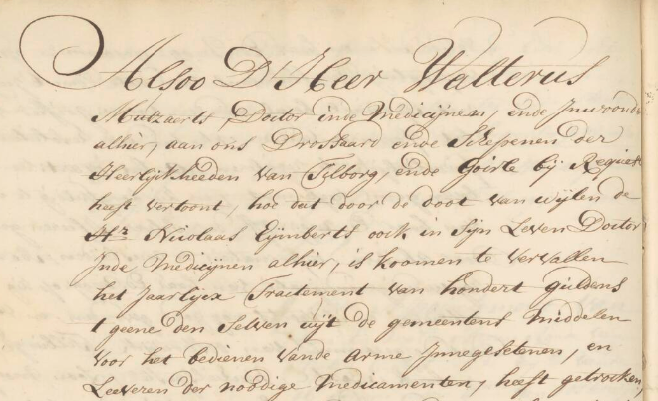 Alsoo D'Heer Walterus
Mutzaerts, Doctor inde Medicijnen, ende Inwoonder
alhier, aan ons Drossaard ende Schepenen der
Heerlijkheeden van Tilborg, ende Goirle bij Request
heeft vertoont, hoe dat door de doot van wijlen de
Hr Nicolaas Eijmberts oock in sijn Leven Doctor
Inde Medicijnen alhier, is koomen te vervallen
het Jaarlijcx Tractement van hondert guldens
t geene den Selven uijt de gemeentens middelen
voor het bedienen vande arme Innegesetenen, en
Leeveren der noodige Medicamenten, heeft getrocken,